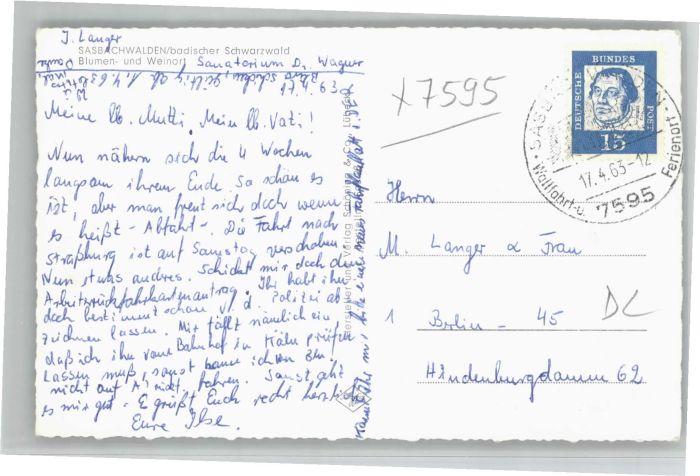 J. Langer
SASBACHWALDEN/badischer Schwarzwald
Blumen- und Weinort, Sanatorium Dr. Wagner
17.4.63
Meine lb. Mutti, Mein lb. Vati!
Nun nähern sich die 4 Wochen
langsam ihrem Ende. So schön es
ist, aber man freut sich doch wenn
es heißt - Abfahrt -. Die Fahrt nach
Straßburg ist auf Samstag verschoben
Nun etwas anderes. Schickt mir doch den
Arbeiterrückfahrkartenantrag. Ihr habt ihn
doch bestimmt schon v. d. Polizei ab-
zeichnen lassen. Mir fällt nämlich ein
daß ich ihn vom Bahnhof in Köln prüfen
lassen muß, sonst kann ich von Bln
nicht auf A' rückt. fahren. Sonst geht
es mir gut. Es grüßt Euch recht herzlich
Eure Ilse.
Könnt Ihr mir bitte einen
x7595
DEUTSCHE BUNDESPOST
15
SASBACHWALDEN
17.4.63-12
Wallfahrt-u. Ferienort
7595
Herrn
M. Langer & Frau
1 Berlin - 45
Hindenburgdamm 62